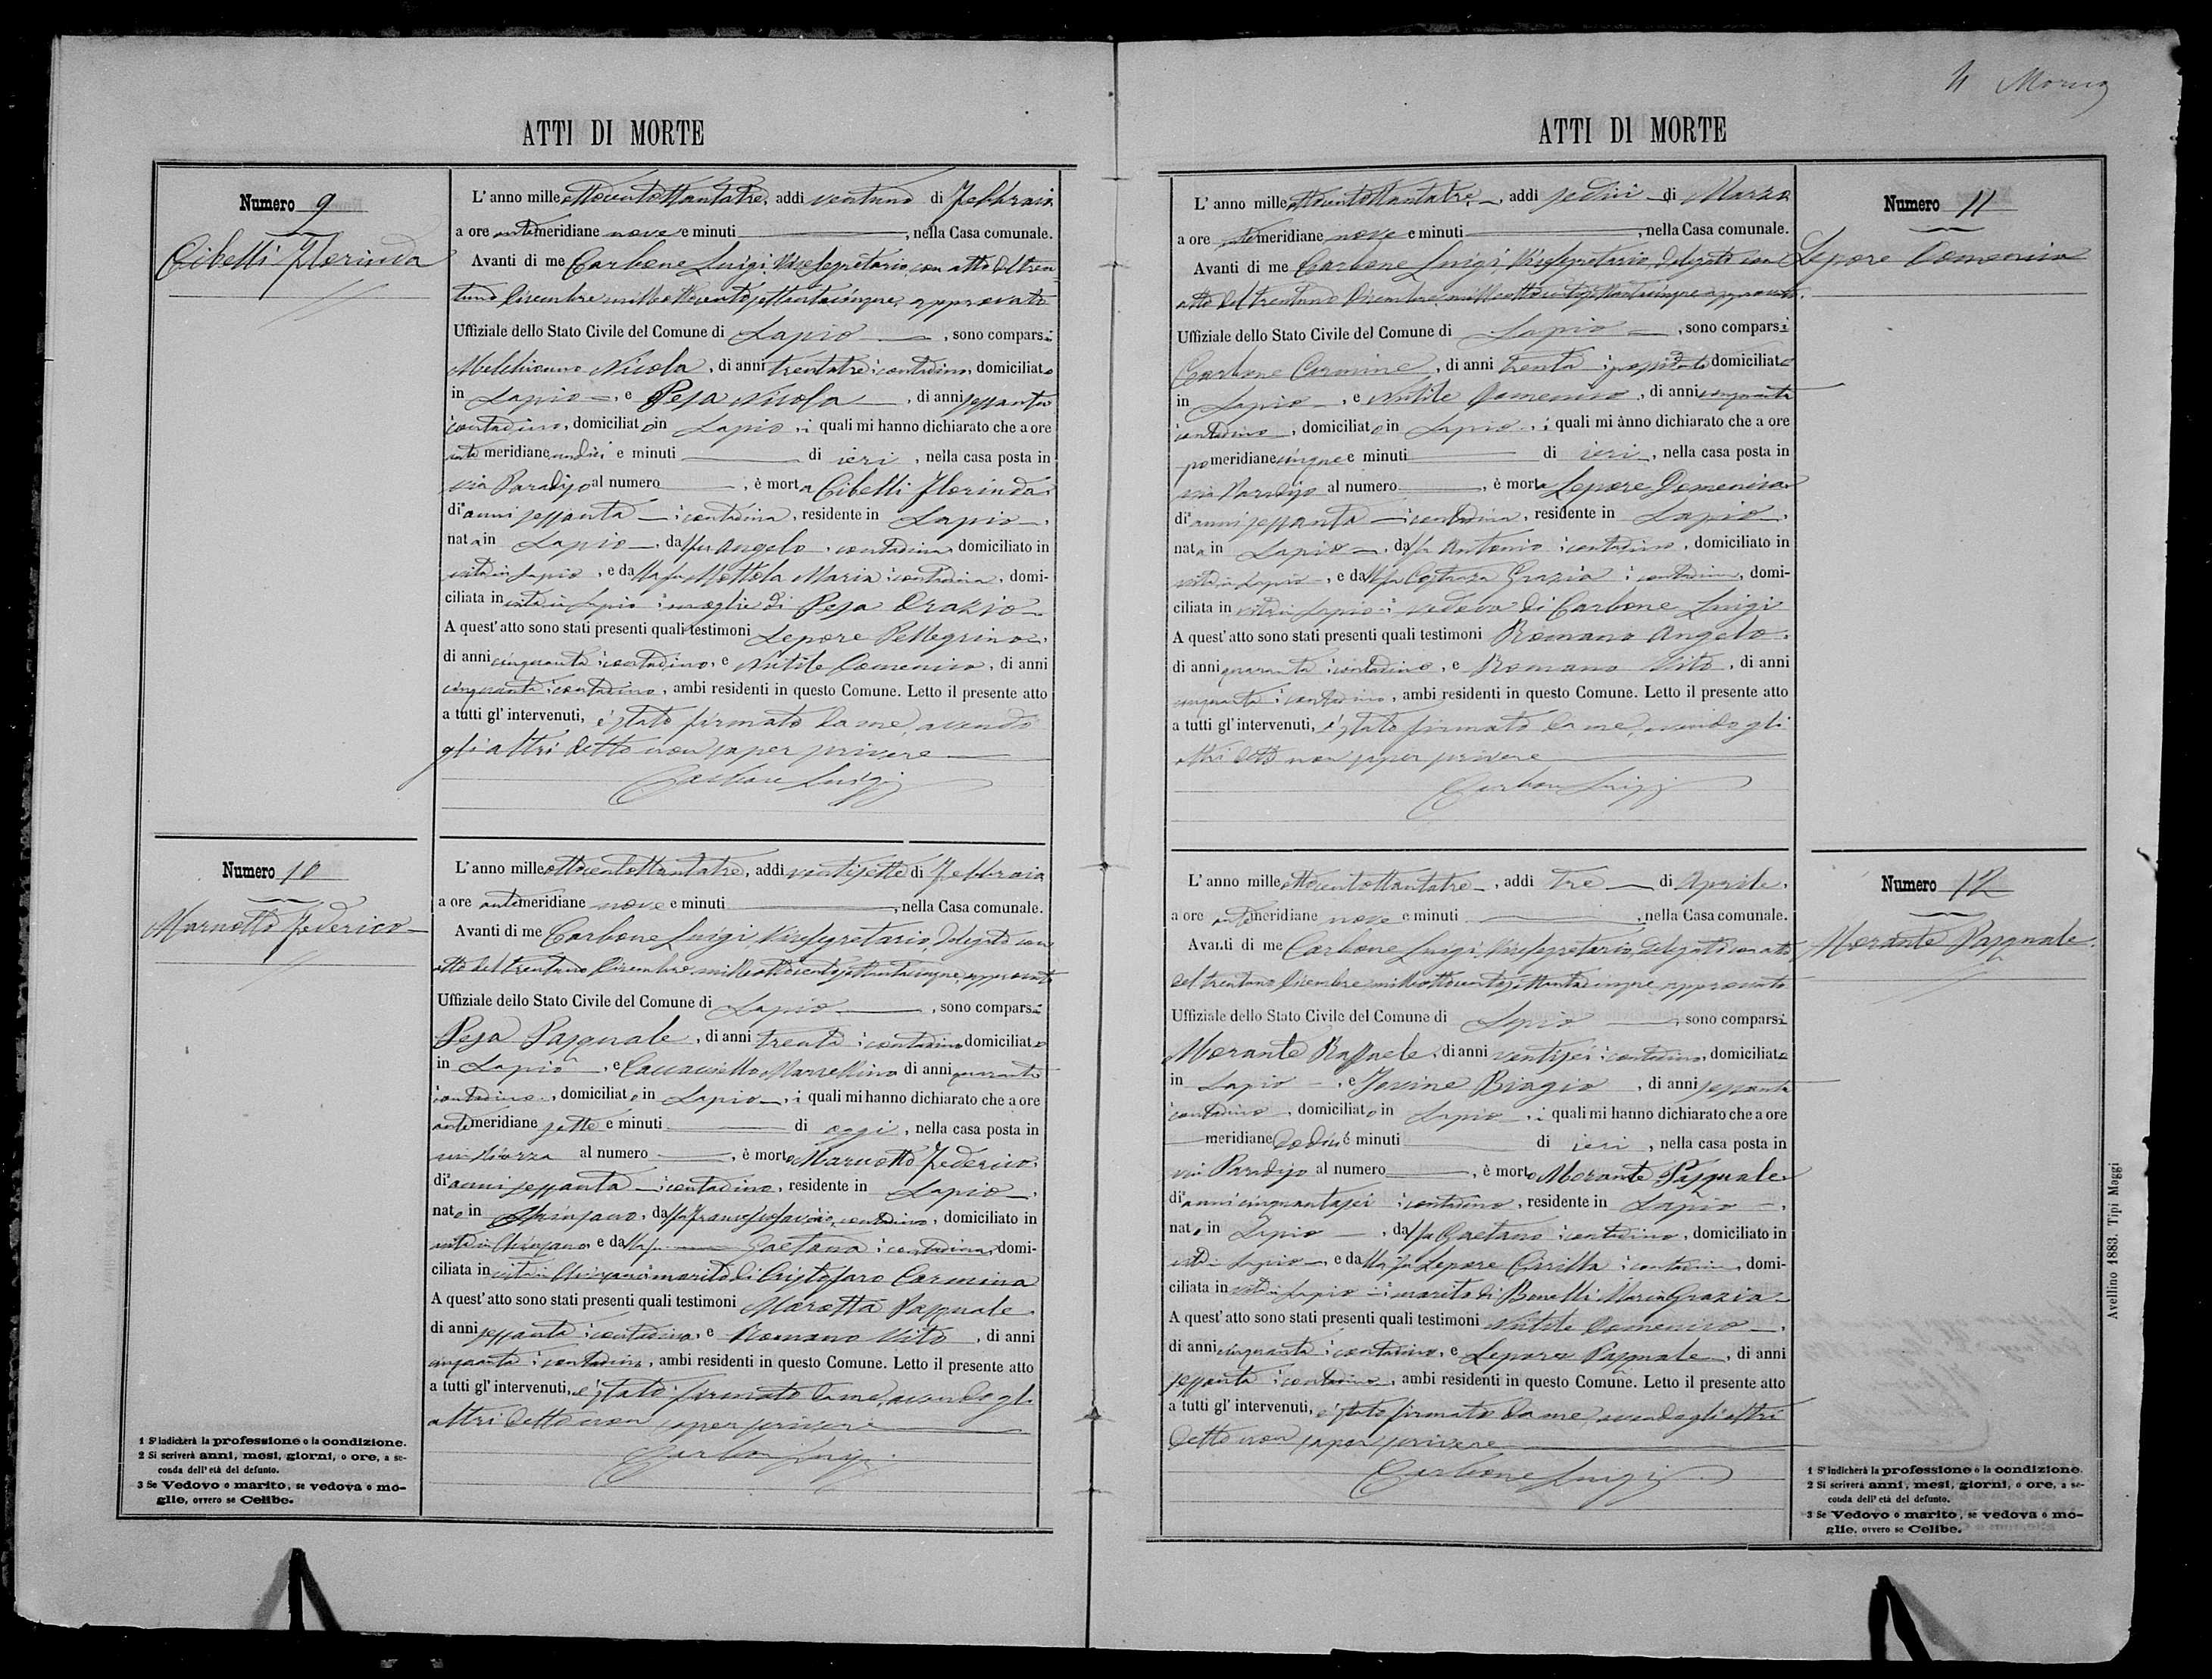 ATTI DI MORTE
Numero 9
Cibelli Florinda
L'anno milleottocentottantatre, addi ventuno di Febbraio
a ore antimeridiane nove e minuti , nella Casa comunale.
Avanti di me Carbone Luigi, Vicesegretario, con atto del tren
tuno Dicembre milleottocentosettantacinque, approvato
Uffiziale dello Stato Civile del Comune di Lapio , sono comparsi
Nicola, di anni trentatre, contadino, domiciliato
in Lapio, e Pesa Nicola, di anni sessanta
contadino, domiciliato in Lapio, i quali mi hanno dichiarato che a ore
antimeridiane undici e minuti di ieri, nella casa posta in
via Paradiso al numero , è morta Cibelli Florinda,
di anni sessanta contadina, residente in Lapio,
nata in Lapio, dal fu Angelo, contadino, domiciliato in
vita in Lapio, e dalla fu Mottola Maria, contadina, domi-
ciliata in vita in Lapio, moglie di Pesa Orazio
A quest'atto sono stati presenti quali testimoni Lepore Pellegrino,
di anni cinquanta, contadino, e Nutile Domenico, di anni
cinquanta, contadino, ambi residenti in questo Comune. Letto il presente atto
a tutti gl'intervenuti, è stato firmato da me, avendo
gli altri detto non saper scrivere
Carbone Luigi
Numero 10
Marnotto Federico
L'anno milleottocentottantatre, addi ventisette di Febbraio
a ore antimeridiane nove e minuti , nella Casa comunale.
Avanti di me Carbone Luigi, Vicesegretario, delegato con
atto del trentuno Dicembre milleottocentosettantacinque, approvato
Uffiziale dello Stato Civile del Comune di Lapio , sono comparsi
Pesa Pasquale, di anni trenta, contadino, domiciliato
in Lapio, e Marcellino di anni quaranta
contadino, domiciliato in Lapio, i quali mi hanno dichiarato che a ore
antimeridiane sette e minuti di oggi, nella casa posta in
via al numero , è morto Marnotto Federico,
di anni sessanta contadino, residente in Lapio,
nato in , dal fu Francesco Saverio, contadino, domiciliato in
vita in , e dalla fu Gaetana, contadina, domi-
ciliata in vita in , marito di Cristofaro Carmina
A quest'atto sono stati presenti quali testimoni Marotta Pasquale
di anni sessanta, contadino, e Romano Vito, di anni
cinquanta, contadino, ambi residenti in questo Comune. Letto il presente atto
a tutti gl'intervenuti, è stato firmato da me, avendo gli
altri detto non saper scrivere
Carbone Luigi
1 S'indicherà la professione o la condizione.
2 Si scriverà anni, mesi, giorni, o ore, a se-
conda dell'età del defunto.
3 Se Vedovo o marito, se vedova o mo-
glie, ovvero se Celibe.
4
ATTI DI MORTE
Numero 11
Lepore Domenica
L'anno milleottocentottantatre, addi sedici di Marzo
a ore antimeridiane nove e minuti , nella Casa comunale.
Avanti di me Carbone Luigi, Vicesegretario, delegato con
atto del trentuno Dicembre milleottocentosettantacinque approvato
Uffiziale dello Stato Civile del Comune di Lapio , sono comparsi
Carbone Carmine, di anni trenta, domiciliato
in Lapio, e Nutile Domenico, di anni cinquanta
contadino, domiciliato in Lapio, i quali mi ànno dichiarato che a ore
pomeridiane cinque e minuti di ieri, nella casa posta in
via Paradiso al numero , è morta Lepore Domenica
di anni sessanta contadina, residente in Lapio,
nata in Lapio, dal fu Antonio, contadino, domiciliato in
vita in Lapio, e dalla fu Grazia, contadina, domi-
ciliata in vita in Lapio, vedova di Carbone Luigi
A quest'atto sono stati presenti quali testimoni Romano Angelo,
di anni quaranta, contadino, e Romano Vito, di anni
cinquanta, contadino, ambi residenti in questo Comune. Letto il presente atto
a tutti gl'intervenuti, è stato firmato da me, avendo gli
altri detto non saper scrivere
Carbone Luigi
Numero 12
Morante Pasquale
L'anno milleottocentottantatre, addi tre di Aprile,
a ore antimeridiane nove e minuti , nella Casa comunale.
Avanti di me Carbone Luigi, Vicesegretario, delegato con atto
del trentuno Dicembre milleottocentosettantacinque, approvato
Uffiziale dello Stato Civile del Comune di Lapio , sono comparsi
Morante Raffaele, di anni ventisei, contadino, domiciliato
in Lapio, e Iovine Biagio, di anni sessanta
contadino, domiciliato in Lapio, i quali mi hanno dichiarato che a ore
meridiane dodici e minuti di ieri, nella casa posta in
via Paradiso al numero , è morto Morante Pasquale
di anni cinquantasei contadino, residente in Lapio,
nato in Lapio, dal fu Gaetano, contadino, domiciliato in
vita in Lapio, e dalla fu Lepore Cirilla, contadina, domi-
ciliata in vita in Lapio, marito di Bonelli Maria Grazia
A quest'atto sono stati presenti quali testimoni Nutile Domenico,
di anni cinquanta, contadino, e Lepore Pasquale, di anni
sessanta, contadino, ambi residenti in questo Comune. Letto il presente atto
a tutti gl'intervenuti, è stato firmato da me, avendo gli altri
detto non saper scrivere
Carbone Luigi
1 S'indicherà la professione o la condizione.
2 Si scriverà anni, mesi, giorni, o ore, a se-
conda dell'età del defunto.
3 Se Vedovo o marito, se vedova o mo-
glie, ovvero se Celibe.
Avellino 1883. Tipi Maggi